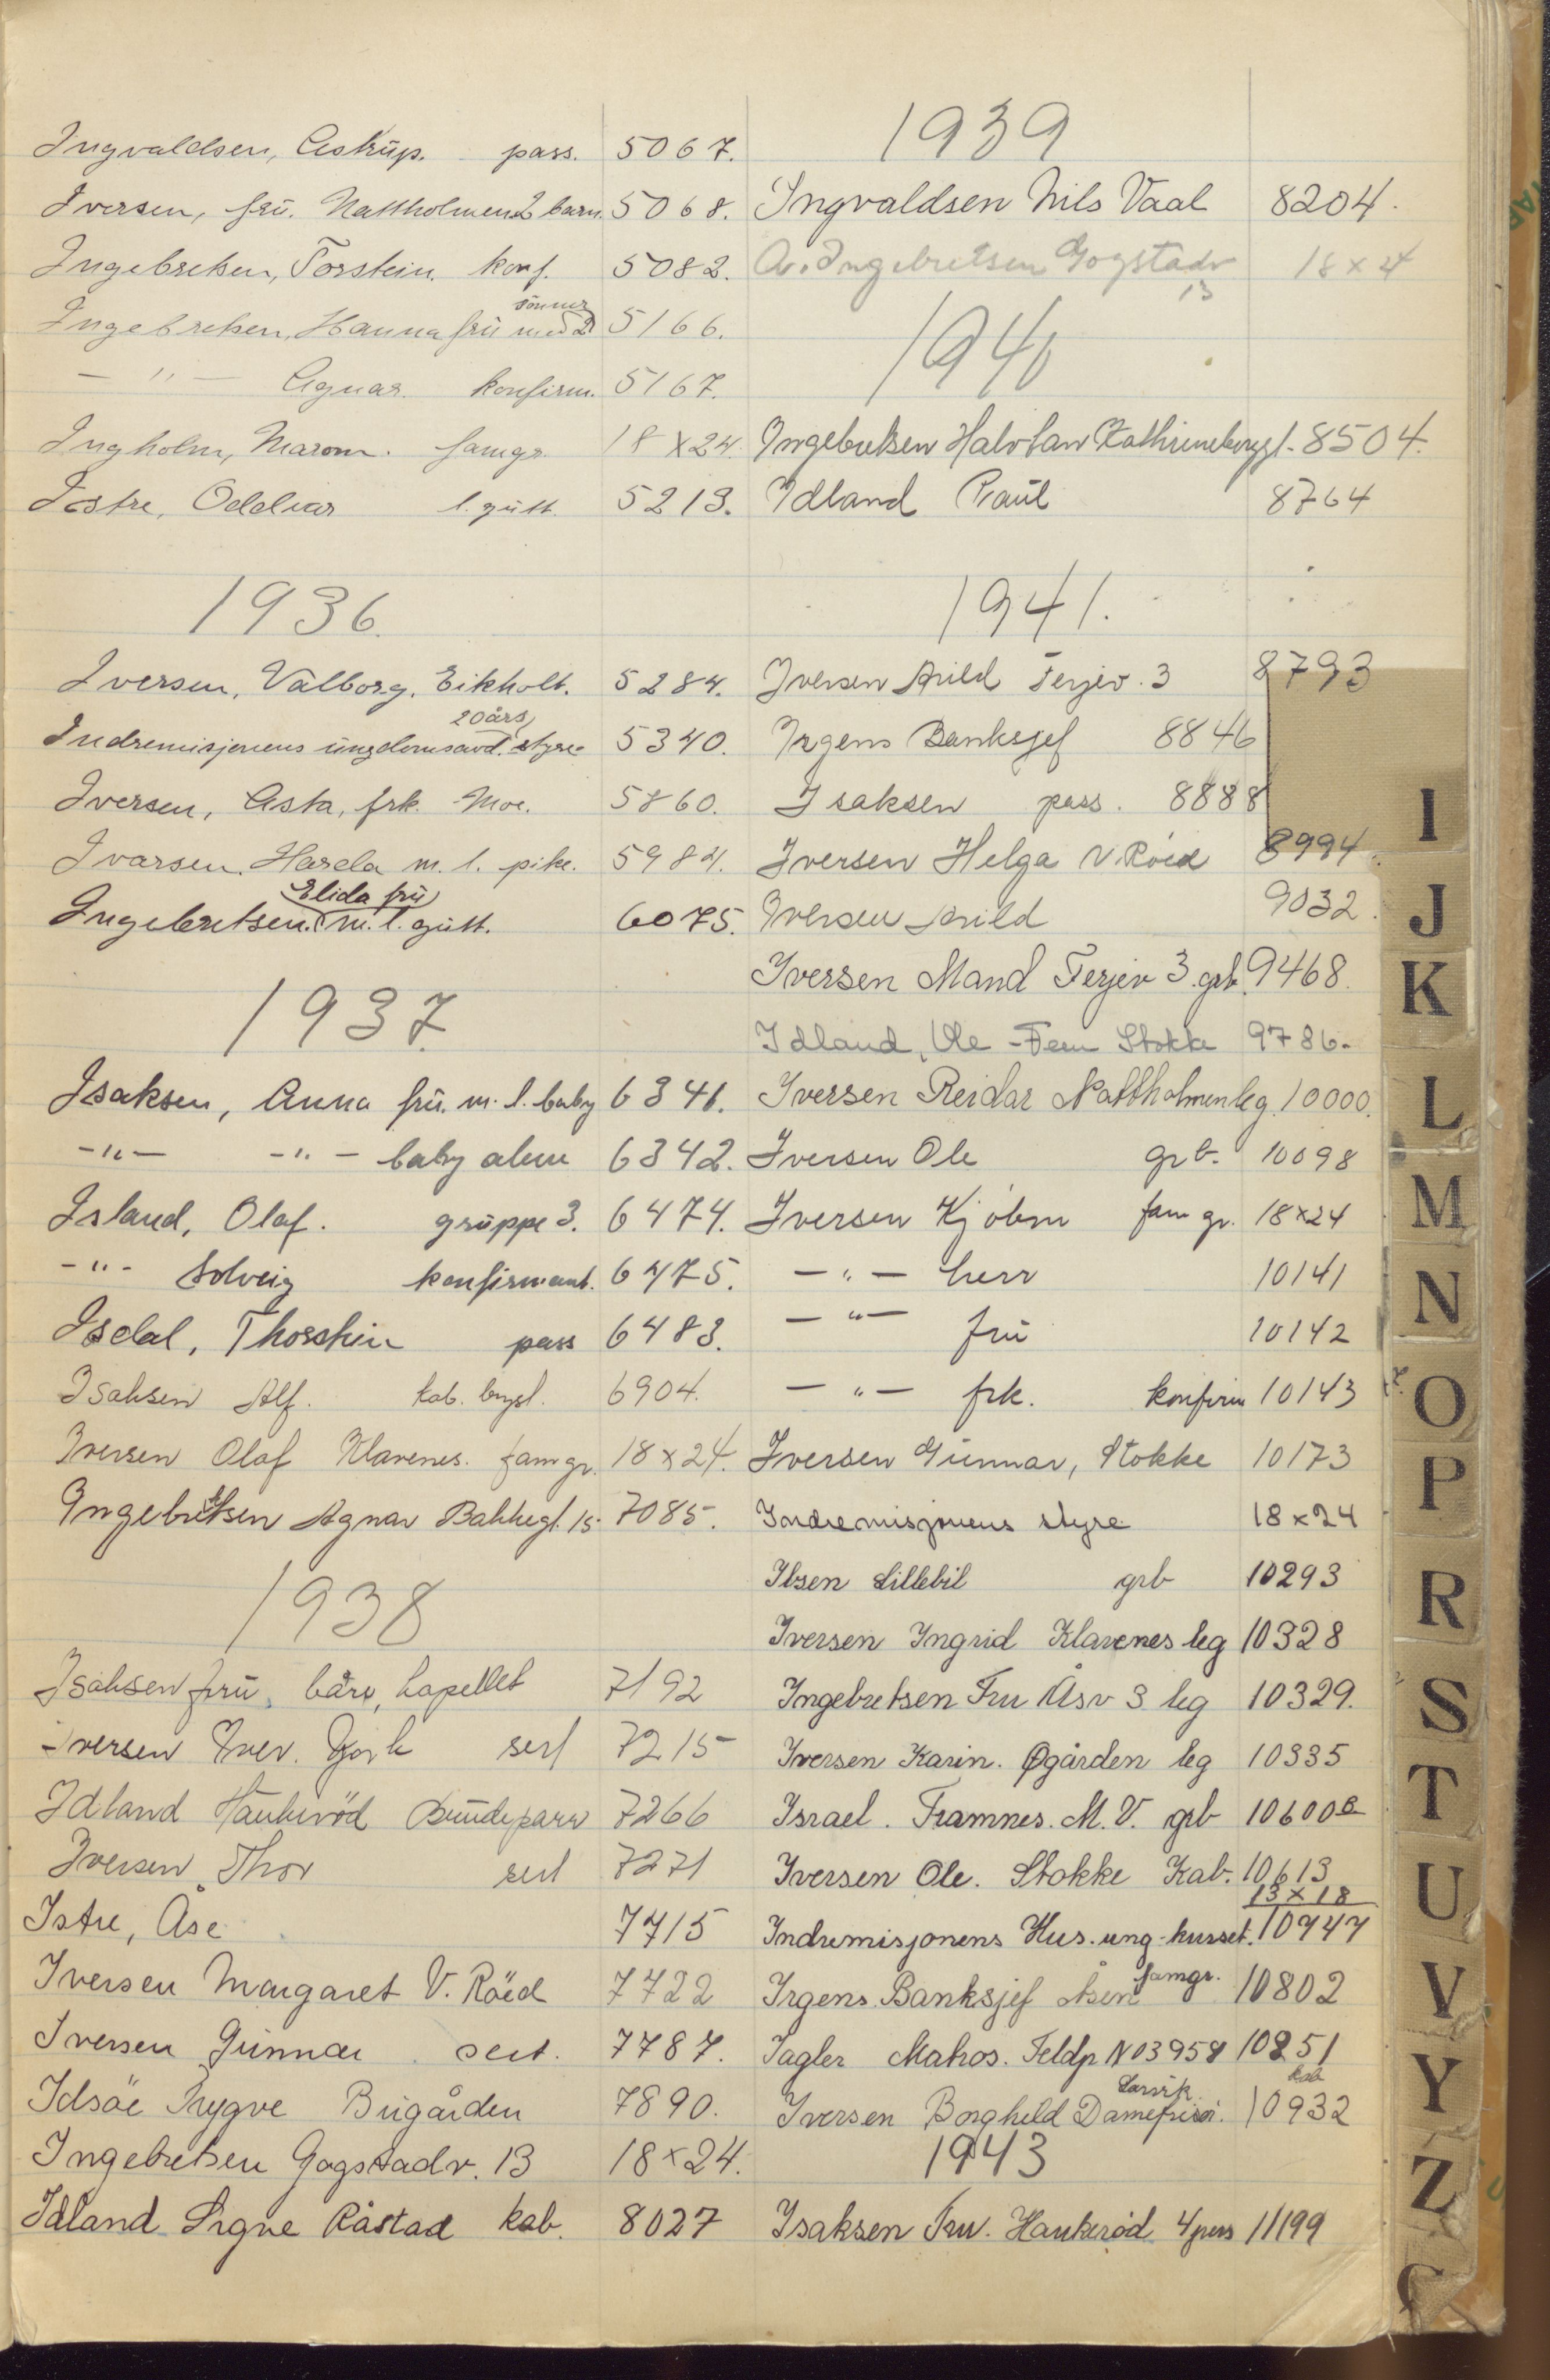 Ingvaldsen, Astrup. pass. 5067.
Iversen, frü. Nattholmen 2 barn. 5068.
Ingebretsen, Torstein. konf. 5082.
Ingebretsen, Hanna frü med 2 sönner 5166.
— " — Agnar. konfirm. 5167.
Ingholm, famgr. 18 x 24.
Istre, Oddvar l. gütt. 5213.
1936.
Iversen, Valborg, Eikholt. 5284.
Indremisjonens üngdomsavd. 20 års styre 5340.
Iversen, Asta, frk. Moe. 5860.
Ivarsen, m. l. pike. 5984.
Ingebretsen. Elida frü m. l. gütt. 6075.
1937.
Isaksen, Anna frü. m. l. baby 6341.
-"- -"- baby alene 6342.
Island, Olaf. grüppe 3. 6474.
-"- Solveig konfirmant. 6475.
Isdal, Thorstein pass 6483.
Isaksen Alf. kab. bryst. 6904.
Iversen Olaf Klavenes. famgr. 18x24.
Ingebretsen Agnar Bakkegt. 15. 7085.
1938
Isaksen frü, båre, kapellet 7192
Iversen Iver. sert 7215
Idland Haukeröd Brüdeparr 7266
Iversen Thor sert 7271
Istre, Åse 7715
Iversen Margaret V. Röed 7722
Iversen Günnar sert. 7787.
Idsöe Trygve Bügården 7890.
Ingebretsen Gogstadv. 13 18x24.
Idland Signe Råstad kab. 8027
1939
Ingvaldsen Nils Vaal 8204.
A. Ingebretsen Gogstadv 13 18x24
1940
Ingebretsen Halvdan Kathrineborggt. 8504.
Idland Paül 8764
1941.
Iversen Arild Terjev. 3 8793
Irgens Banksjef 8846
Isaksen pass. 8888
Iversen Helga V. Röed 8994.
Iversen Arild 9032.
Iversen Mand Terjev 3. grb. 9468.
Idland, Ole - Fem Stokke 9786.
Iversen Reidar Nattholmen leg. 10000.
Iversen Ole grb. 10098
Iversen Kjöbm fam gr. 18x24
— " — herr 10141
— " — frü 10142
— " — frk. konfirm 10143
Iversen Günnar, Stokke 10173
Indremisjonens styre 18x24
Ibsen Lillebil grb 10293
Iversen Ingrid Klavenes leg 10328
Ingebretsen Fru Åsv 3 leg 10329.
Iversen Karin. Øgården leg 10335
Israel. Framnes. M.V. grb 10600 B
Iversen Ole. Stokke Kab. 10613
13 x 18
Indremisjonens Hus. ung-kurset. 10747
Irgens Banksjef Åsen famgr. 10802
Iagler Matros. Feldp N 03958 10851
kab
Iversen Borghild Damefrisör. Larvik 10932
1943
Isaksen Fru. Haukeröd 4 pers 11199
I
J
K
L
M
N
O
P
R
S
T
U
V
Y
Z